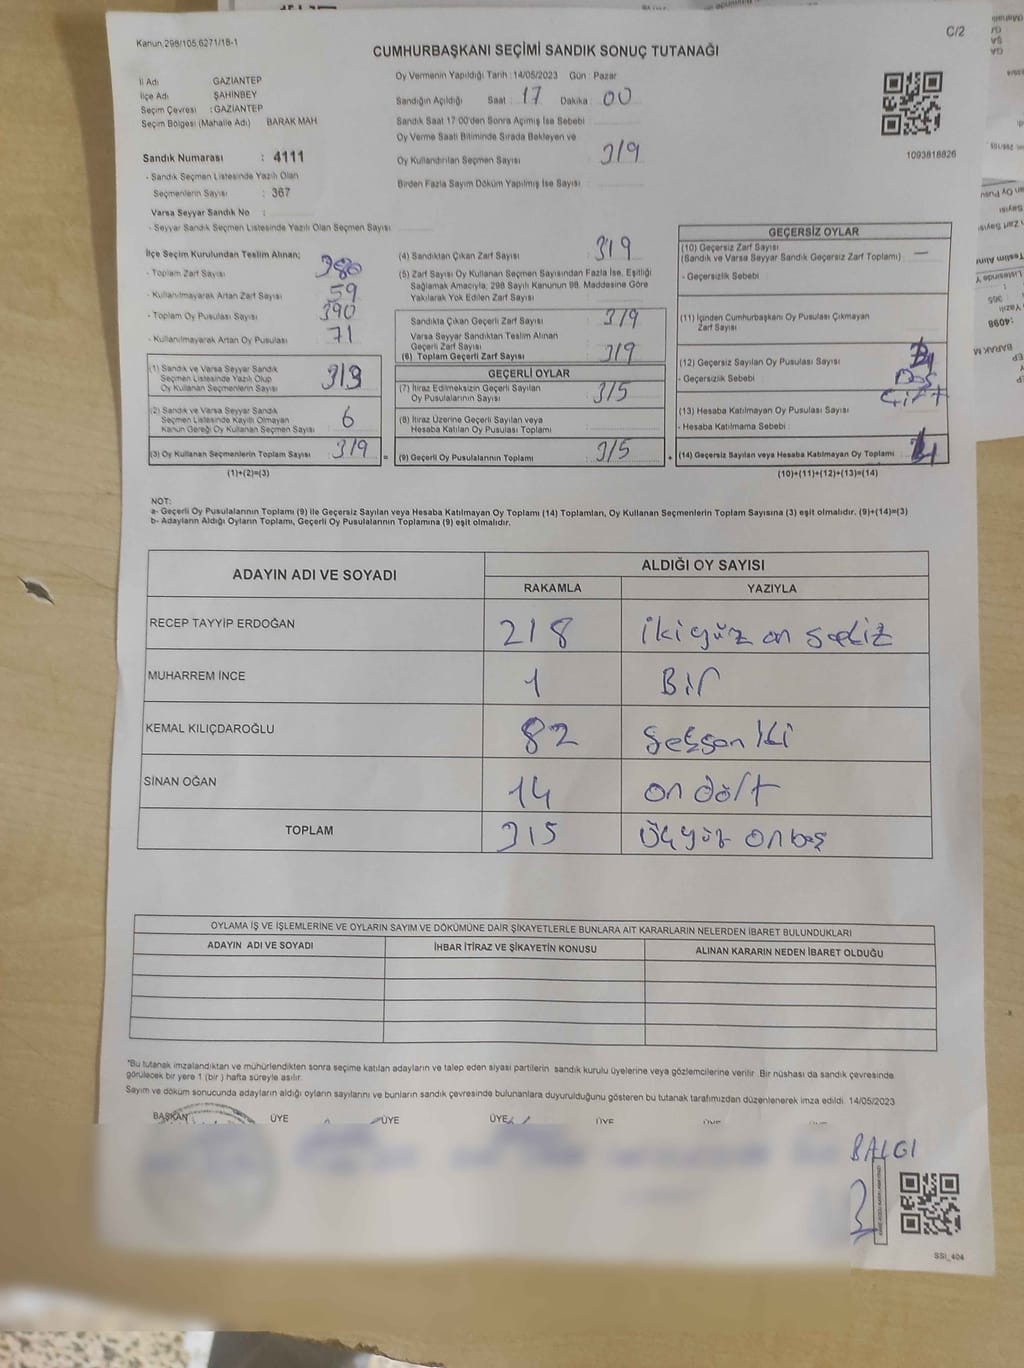 Kanun.298/105,6271/18-1
C/2
CUMHURBAŞKANI SEÇİMİ SANDIK SONUÇ TUTANAĞI
İl Adı GAZİANTEP
İlçe Adı ŞAHİNBEY
Seçim Çevresi : GAZİANTEP
Seçim Bölgesi (Mahalle Adı) BARAK MAH
Sandık Numarası : 4111
- Sandık Seçmen Listesinde Yazılı Olan
Seçmenlerin Sayısı : 367
Varsa Seyyar Sandık No :
- Seyyar Sandık Seçmen Listesinde Yazılı Olan Seçmen Sayısı
Oy Vermenin Yapıldığı Tarih :14/05/2023 Gün : Pazar
Sandığın Açıldığı Saat : 17 Dakika : 00
Sandık Saat 17:00'den Sonra Açımış İse Sebebi :
Oy Verme Saati Bitiminde Sırada Bekleyen ve
Oy Kullandırılan Seçmen Sayısı : 319
Birden Fazla Sayım Döküm Yapılmış İse Sayısı :
1093818826
İlçe Seçim Kurulundan Teslim Alınan;
- Toplam Zarf Sayısı 380
- Kullanılmayarak Artan Zarf Sayısı 59
- Toplam Oy Pusulası Sayısı 390
- Kullanılmayarak Artan Oy Pusulası 71
(1) Sandık ve Varsa Seyyar Sandık
Seçmen Listesinde Yazılı Olup
Oy Kullanan Seçmenlerin Sayısı 313
(2) Sandık ve Varsa Seyyar Sandık
Seçmen Listesinde Kayıtlı Olmayan
Kanun Gereği Oy Kullanan Seçmen Sayısı 6
(3) Oy Kullanan Seçmenlerin Toplam Sayısı 319 =
(1)+(2)=(3)
(4) Sandıktan Çıkan Zarf Sayısı : 319
(5) Zarf Sayısı Oy Kullanan Seçmen Sayısından Fazla İse, Eşitliği
Sağlamak Amacıyla, 298 Sayılı Kanunun 98. Maddesine Göre
Yakılarak Yok Edilen Zarf Sayısı
Sandıkta Çıkan Geçerli Zarf Sayısı : 319
Varsa Seyyar Sandıktan Teslim Alınan
Geçerli Zarf Sayısı
(6) Toplam Geçerli Zarf Sayısı : 319
GEÇERLİ OYLAR
(7) İtiraz Edilmeksizin Geçerli Sayılan
Oy Pusulalarının Sayısı : 315
(8) İtiraz Üzerine Geçerli Sayılan veya
Hesaba Katılan Oy Pusulası Toplamı
(9) Geçerli Oy Pusulalarının Toplamı : 315 +
GEÇERSİZ OYLAR
(10) Geçersiz Zarf Sayısı
(Sandık ve Varsa Seyyar Sandık Geçersiz Zarf Toplamı) —
- Geçersizlik Sebebi
(11) İçinden Cumhurbaşkanı Oy Pusulası Çıkmayan
Zarf Sayısı
(12) Geçersiz Sayılan Oy Pusulası Sayısı
- Geçersizlik Sebebi : Boş
Çift
(13) Hesaba Katılmayan Oy Pusulası Sayısı
- Hesaba Katılmama Sebebi :
(14) Geçersiz Sayılan veya Hesaba Katılmayan Oy Toplamı
(10)+(11)+(12)+(13)=(14)
NOT:
a- Geçerli Oy Pusulalarının Toplamı (9) ile Geçersiz Sayılan veya Hesaba Katılmayan Oy Toplamı (14) Toplamları, Oy Kullanan Seçmenlerin Toplam Sayısına (3) eşit olmalıdır. (9)+(14)=(3)
b- Adayların Aldığı Oyların Toplamı, Geçerli Oy Pusulalarının Toplamına (9) eşit olmalıdır.
ADAYIN ADI VE SOYADI
ALDIĞI OY SAYISI
RAKAMLA YAZIYLA
RECEP TAYYİP ERDOĞAN 218 ikiyüz on sekiz
MUHARREM İNCE 1 Bir
KEMAL KILIÇDAROĞLU 82 Seksen iki
SİNAN OĞAN 14 on dört
TOPLAM 315 Üçyüz onbeş
OYLAMA İŞ VE İŞLEMLERİNE VE OYLARIN SAYIM VE DÖKÜMÜNE DAİR ŞİKAYETLERLE BUNLARA AİT KARARLARIN NELERDEN İBARET BULUNDUKLARI
ADAYIN ADI VE SOYADI İHBAR İTİRAZ VE ŞİKAYETİN KONUSU ALINAN KARARIN NEDEN İBARET OLDUĞU
*Bu tutanak imzalandıktan ve mühürlendikten sonra seçime katılan adayların ve talep eden siyasi partilerin sandık kurulu üyelerine veya gözlemcilerine verilir. Bir nüshası da sandık çevresinde
görülecek bir yere 1 (bir) hafta süreyle asılır.
Sayım ve döküm sonucunda adayların aldığı oyların sayılarını ve bunların sandık çevresinde bulunanlara duyurulduğunu gösteren bu tutanak tarafımızdan düzenlenerek imza edildi. 14/05/2023
BAŞKAN ÜYE ÜYE ÜYE ÜYE ÜYE
BALGI
SSİ_404